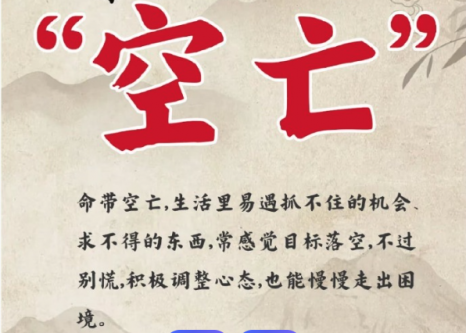 “空亡”
命带空亡,生活里易遇抓不住的机会、
求不得的东西,常感觉目标落空,不过
别慌,积极调整心态,也能慢慢走出困
境。